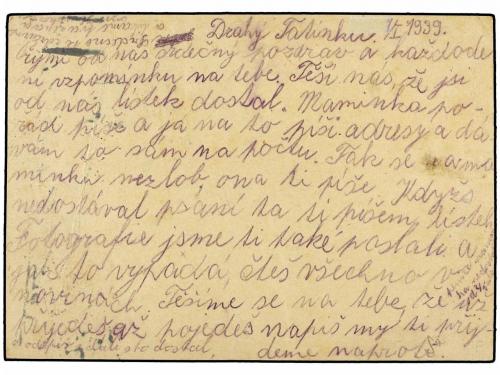 Drahý Tatínku. 1/I 1939.
Přijmi od nás srdečný pozdrav a každode
ní vzpomínku na tebe. Těší nás, že jsi
od nás lístek dostal. Maminka po-
řád píše a ja na to píši adresy a dá
vám to sám na poštu. Tak se na ma
minku nezlob, ona ti píše. Když
nedostával psání ta ti píšem lístek
Fotografie jsme ti také poslali a
jak to vypadá, čteš všechno v
novinách. Těšíme se na tebe, že už
přijedeš až pojedeš napiš my ti přij-
deme naproti.
a odepiš dostal,